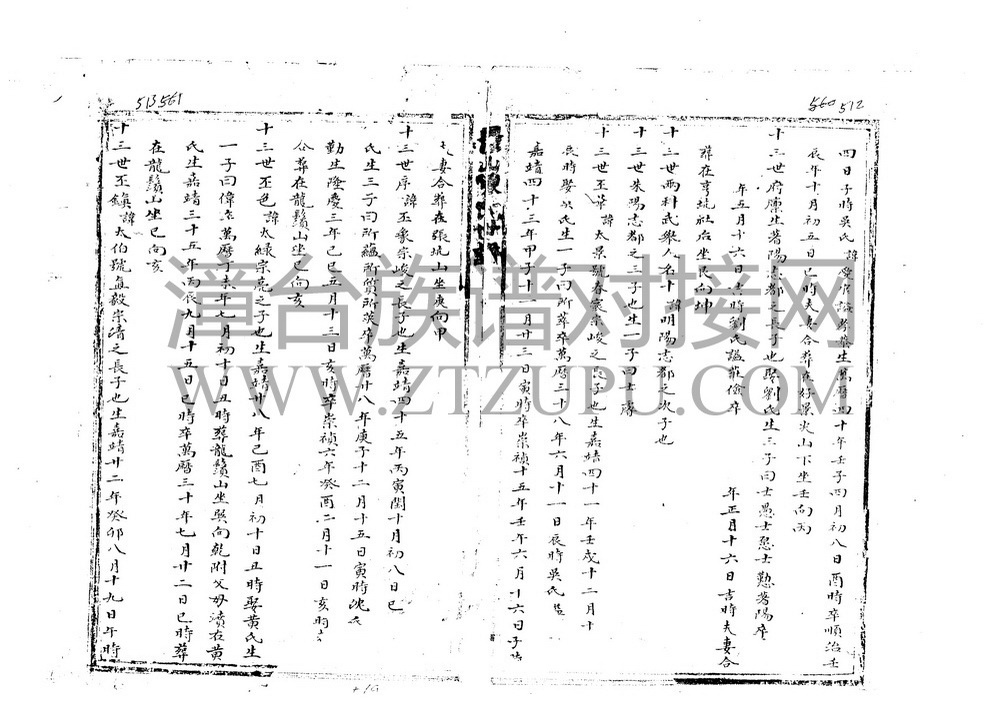 513561
560 512
四日子時吳氏諱受宗諡考慈生萬曆四十年壬子四月初八日酉時卒順治壬
辰年十月初五日巳時夫妻合葬在好景火山下坐壬向丙
十三世府廩生著陽志都之長子也娶劉氏生三子曰士愚士懇士懃著陽卒
年五月十六日吉時劉氏諡莊儉卒 年正月十六日吉時夫妻合
葬在亨坑社后坐艮向坤
十三世兩科武舉人名十諱明陽志都之次子也
十三世朱陽志都之三子也生一子曰士
十三世丕華諱太景號春寰宗峻之長子也生嘉靖四十一年壬戌十二月十
辰時娶吳氏生一子曰所萃卒萬曆三十八年六月十一日辰時吳氏生
嘉靖四十三年甲子十一月廿三日寅時卒崇禎十五年壬年六月十六日子時
夫妻合葬在張坑山坐庚向甲
十三世序諱丕象宗峻之長子也生嘉靖四十五年丙寅閏十月初八日巳
氏生三子曰所蘊所質所茨卒萬曆廿八年庚子十二月十五日寅時沈氏
勤生隆慶三年己巳五月十三日亥時卒崇禎六年癸酉二月十一日亥時
合葬在龍鬚山坐巳向亥
十三世丕色諱太綠宗亮之子也生嘉靖廿八年己酉七月初十日丑時娶黃氏生
一子曰偉卒萬曆丁未年七月初十日丑時葬龍鬚山坐巽向乾附父母墳右黃
氏生嘉靖三十五年丙辰九月十五日巳時卒萬曆三十年七月廿二日巳時葬
在龍鬚山坐巳向亥
十三世丕鎮諱太伯號直毅宗靖之長子也生嘉靖廿二年癸卯八月十九日午時
漳台族谱对接网
WWW.ZTZUPU.COM